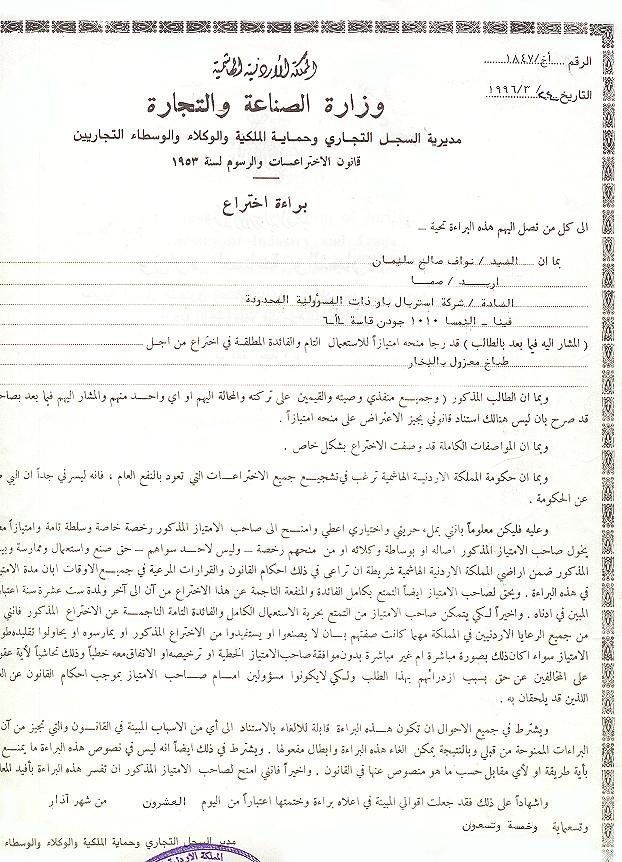 الرقم .....أخ/١٨٤٧......
التاريخ ٢٤/٣/١٩٩٦
المملكة الأردنية الهاشمية
وزارة الصناعة والتجارة
مديرية السجل التجاري وحماية الملكية والوكلاء والوسطاء التجاريين
قانون الاختراعات والرسوم لسنة ١٩٥٣
براءة اختراع
الى كل من تصل اليهم هذه البراءة تحية —
بما ان السيد / نواف صالح سليمان
اربد / صما
السادة / شركة استربال باو ذات المسؤولية المحدودة
فينا - النمسا ١٠١٠ جودن قاسة
( المشار اليه فيما بعد بالطالب ) قد رجا منحه امتيازاً للاستعمال التام والفائدة المطلقة في اختراع من اجل
طباخ معزول بالبخار
وبما ان الطالب المذكور ( وجميع منفذي وصيته والقيمين على تركته والمحالة اليهم او اي واحد منهم والمشار اليهم فيما بعد
قد صرح بان ليس هنالك استناد قانوني يجيز الاعتراض على منحه امتيازاً .
وبما ان المواصفات الكاملة قد وصفت الاختراع بشكل خاص .
وبما ان حكومة المملكة الاردنية الهاشمية ترغب في تشجيع جميع الاختراعات التي تعود بالنفع العام ، فانه ليسرني جداً ان البي
عن الحكومة .
وعليه فليكن معلوماً بانني بملء حريتي واختياري اعطي وامنح الى صاحب الامتياز المذكور رخصة خاصة وسلطة تامة وامتيازاً
يخول صاحب الامتياز المذكور اصاله او بوساطة وكلائه او من منحهم رخصة — وليس لاحد سواهم — حق صنع واستعمال وممارسة
المذكور ضمن اراضي المملكة الاردنية الهاشمية شريطة ان تراعى في ذلك احكام القانون والقرارات المرعية في جميع الاوقات ابان مدة
في هذه البراءة . ويحق لصاحب الامتياز ايضاً التمتع بكامل الفائدة و المنفعة الناجمة عن هذا الاختراع من آن الى آخر ولمدة ست عشرة سنة
المبين في ادناه . واخيراً لكي يتمكن صاحب الامتياز من التمتع بحرية الاستعمال الكامل والفائدة التامة الناجمة عن الاختراع المذكور فانني
من جميع الرعايا الاردنيين في المملكة مهما كانت صفتهم بان لا يصنعوا او يستفيدوا من الاختراع المذكور او يمارسوه او يحاولوا تقليده
الامتياز سواء اكان ذلك بصورة مباشرة ام غير مباشرة بدون موافقة صاحب الامتياز الخطية او ترخيصه او الاتفاق معه خطياً وذلك تحاشياً لأية
على المخالفين عن حق بسبب ازدرائهم بهذا الطلب ولكي لايكونوا مسؤولين امام صاحب الامتياز بموجب احكام القانون عن
اللذين قد يلحقان به .
ويشترط في جميع الاحوال ان تكون هذه البراءة قابلة للالغاء بالاستناد الى أي من الاسباب المبينة في القانون والتي تجيز من آن
البراءات الممنوحة من قبلي وبالنتيجة يمكن الغاء هذه البراءة وابطال مفعولها . ويشترط في ذلك ايضاً انه ليس في نصوص هذه البراءة ما يمنع
بأية طريقة او لأي مقابل حسب ما هو منصوص عنها في القانون . واخيراً فانني امنح لصاحب الامتياز المذكور ان تفسر هذه البراءة بأفيد
واشهاداً على ذلك فقد جعلت اقوالي المبينة في اعلاه براءة وختمتها اعتباراً من اليوم العشرون من شهر آذار
وتسعماية وخمسة وتسعون
مدير السجل التجاري وحماية الملكية والوكلاء والوسطاء
المملكة الاردنية